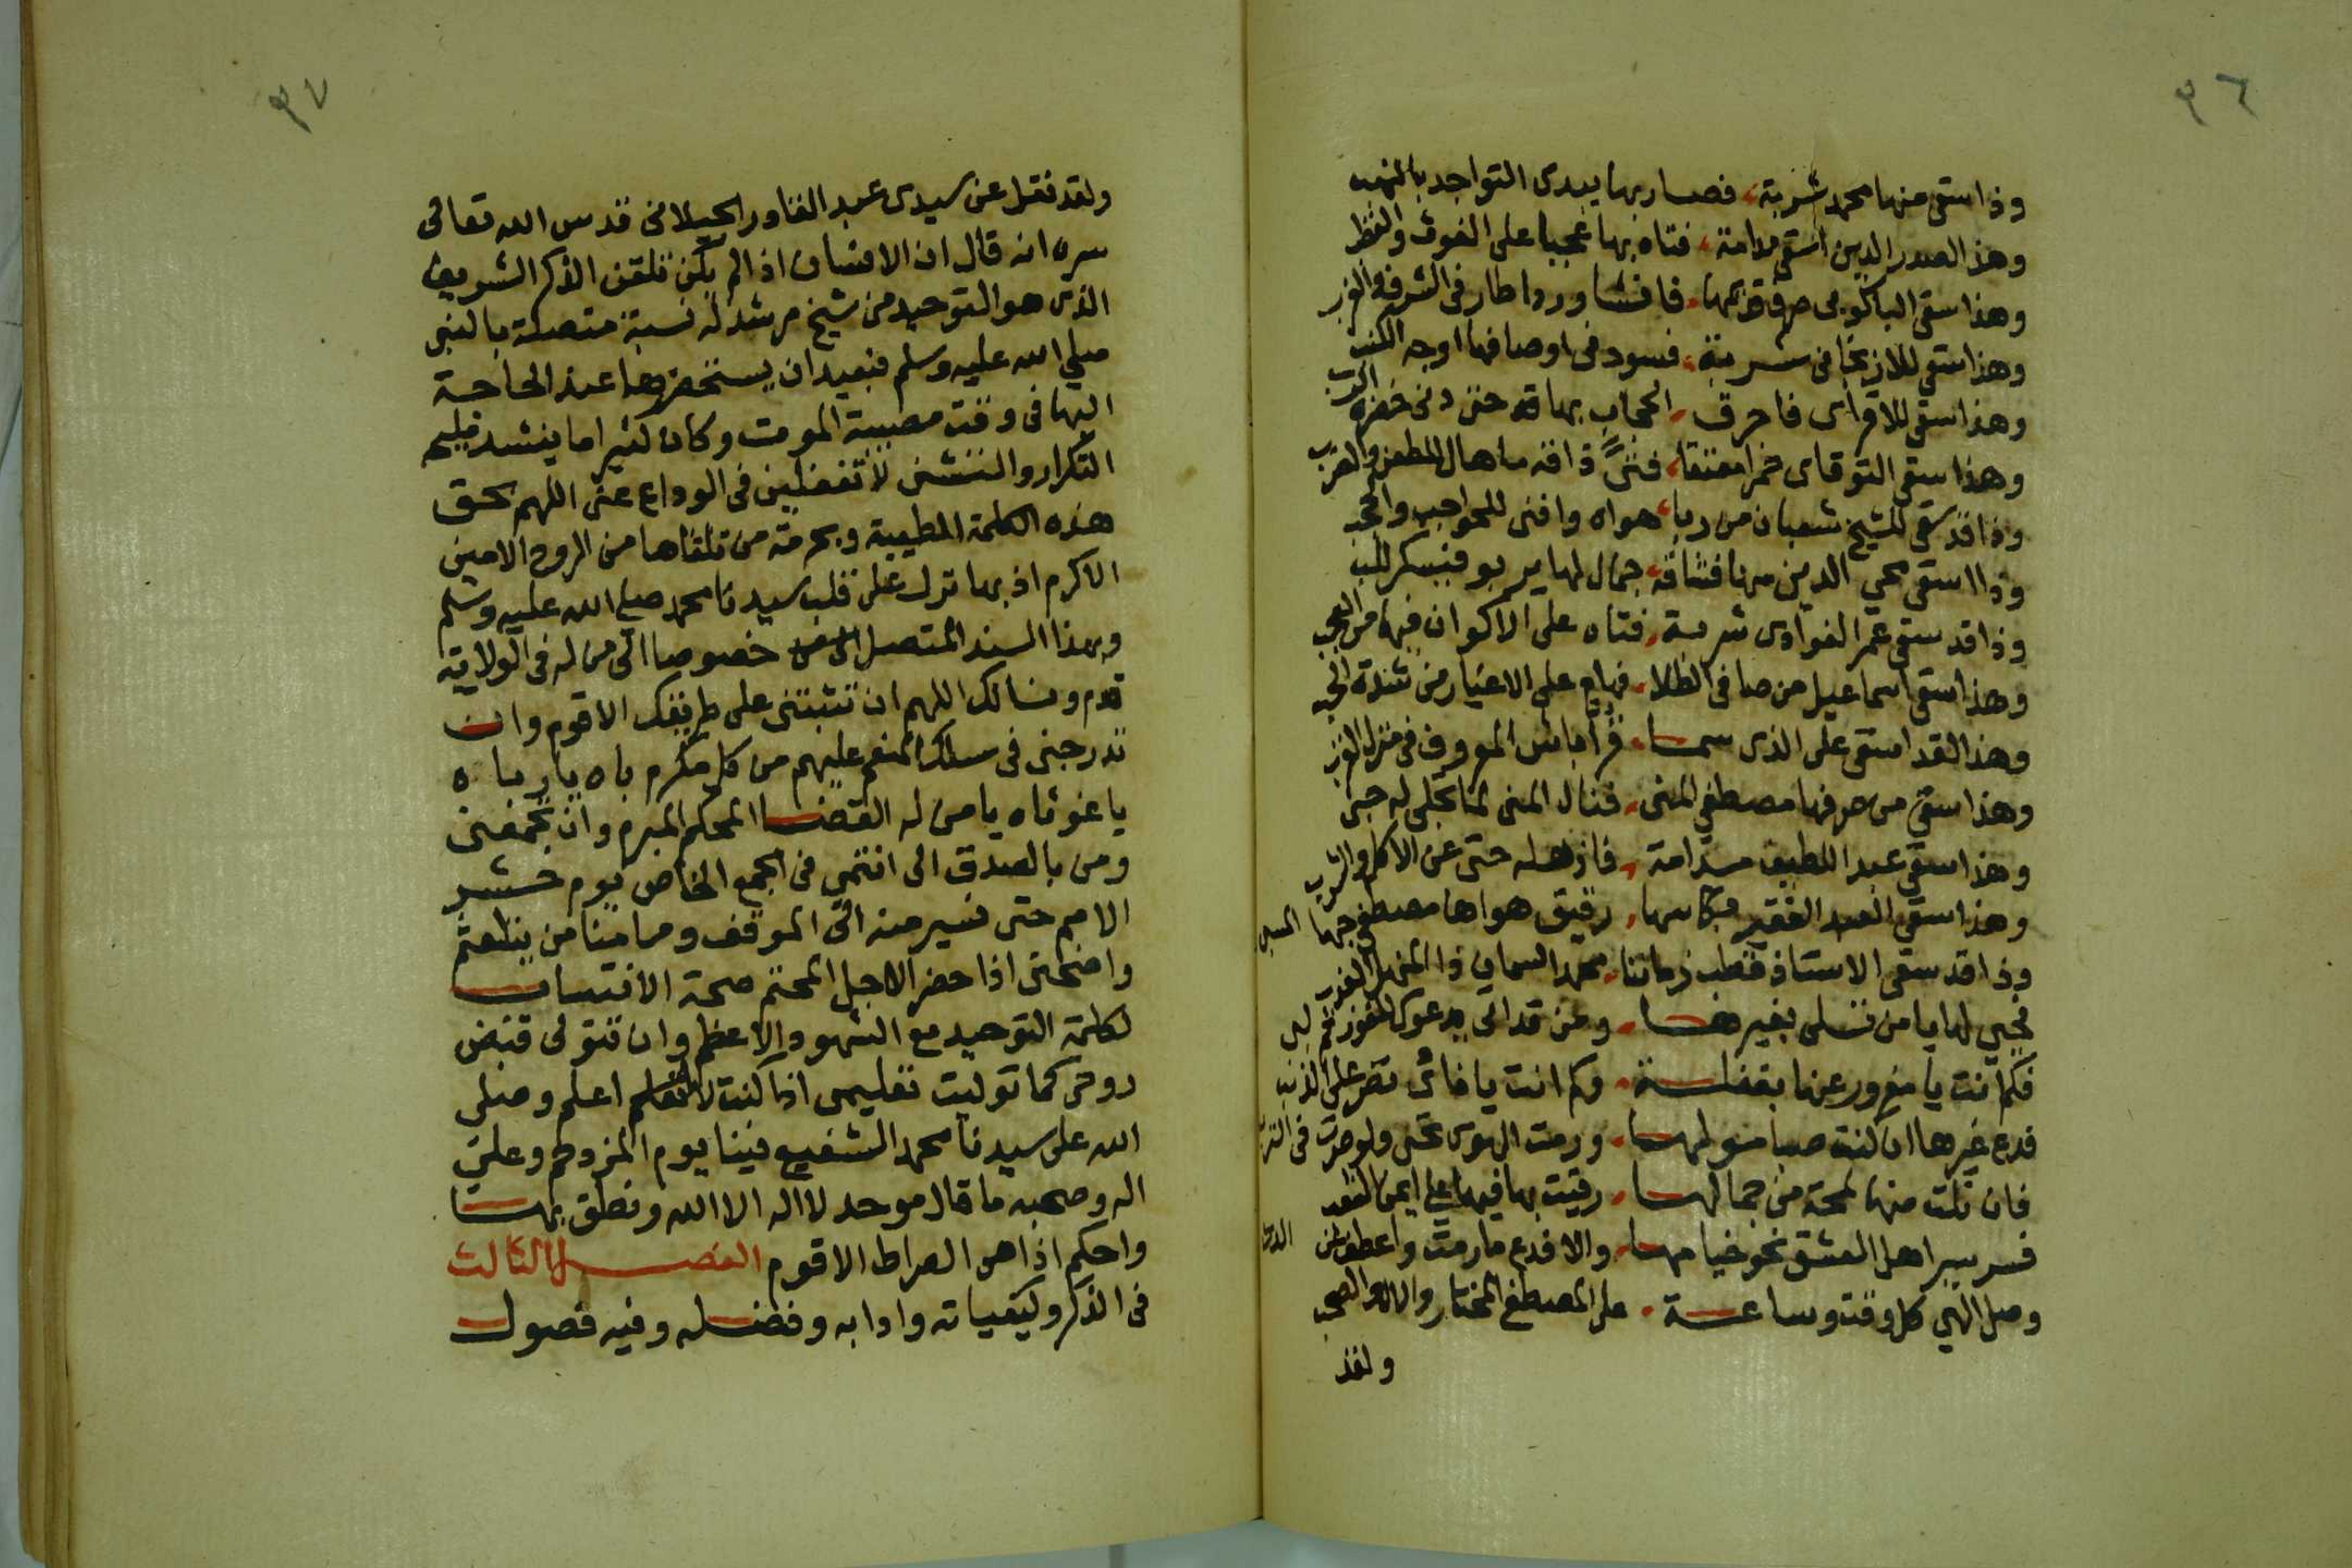 ٩٦
وذا سقى منها محمد شربة، فصار بها يبدى التواجد بالنهب
وهذا الصدر الدين استقى مدامة، فتاه بها عجبا على الغوث والقطب
وهذا سقى الباكوبى صرف، فافشا ورد اطار فى الشرق والغرب
وهذا سقى للازنجانى شربة، فسود فى اوصافها اوجه الكتب
وهذا سقى للاقراى فاحرق، الحجاب بها حتى دنى حضرة القرب
وهذا سقى التوقاى خمرا معتقا، ذاقه ما هال للطعن والضرب
وذا قد سقى للشيخ شعبان من ربا، هواه وافنى للحواجب والحجب
وذا استقى محي الدين منها فشاقه، جمال لها يربو فيسكر للب
وذا قد سقى عمر الفوادى شربة، فتاه على الاكوان فيها من العجب
وهذا سقى اسماعيل من صافى الطلا، فهام على الاغيار من شدة الحب
وهذا لقد استقى على الذى سما، قرأباش المعروف فى منزل الغرب
وهذا سقى من صرفها مصطفى المنى، فنال المنى لما تجلى له حبى
وهذا سقى عبد اللطيف مدامة، فاذهله حتى عن الاكل والشرب
وهذا سقى العبد الفقير بكاسها، رقيق هواها مصطفى حبها
وذا قد سقى الاستاذ قطب زماننا، محمد السمان ذا المنهل العذب
فحى لها يا من تسلى بغيرها، ومن قد اتى يدعوك للفوز قم لب
فكم انت يا مغرور عنها بغفلة، وكم انت يا فانى تصر على الذنب
فدع غيرها ان كنت صبا مولها، ورمت الهوى تحى ولو صرت فى الترب
فان نلت منها لمحة من جمالها، رقيت بها فيها على ايمن
فسر سير اهل العشق نحو خيامها، والا فدع ما رمت واعطف
وصل الهي كل وقت وساعة، على المصطفى المختار والال والصحب
ولقد
٩٧
ولقد نقل عن سيدى عبد القادر الجيلانى قدس الله تعالى
سره انه قال ان الانسان اذا لم يكن تلقن الذكر الشريف
الذى هو التوحيد من شيخ مرشد له نسبة متصلة بالنبى
صلى الله عليه وسلم فبعيد ان يستحضرها عند الحاجة
اليها فى وقت مصيبة الموت وكان كثيرا ما ينشد مليح
التكرار والتثنى لا تغفلين فى الوداع عنى اللهم بحق
هذه الكلمة الطيبة وبحرمة من تلقاها من الروح الامين
الاكرم اذ بها نزل على قلب سيدنا محمد صلى الله عليه وسلم
وبهذا السند المتصل خصوصا الى من له فى الولاية
قدم ونسالك اللهم ان تثبتنى على طريقك الاقوم وان
تدرجنى فى سلك المنعم عليهم من كل مكرم ياه يا رباه
يا غوثاه يا من له القضا المحكم المبرم وان تجمعنى
ومن بالصدق الى انتمى فى الجمع الخاص يوم حشر
الامم حتى نسير منه الى الموقف وما منا من يتلعثم
وامنحنى اذا حضر الاجل المحتم صحة الانتساب
لكلمة التوحيد مع الشهود الاعظم وان تتولى قبض
روحى كما توليت تعليمى اذا كنت لا اعلم وصلى
الله على سيدنا محمد الشفيع فينا يوم المزدحم وعلى
اله وصحبه ما قال موحد لا اله الا الله ونطق بها
واحكم اذا هى الصراط الاقوم الفصل الثالث
فى الذكر وكيفياته وادابه وفضله وفيه فصول